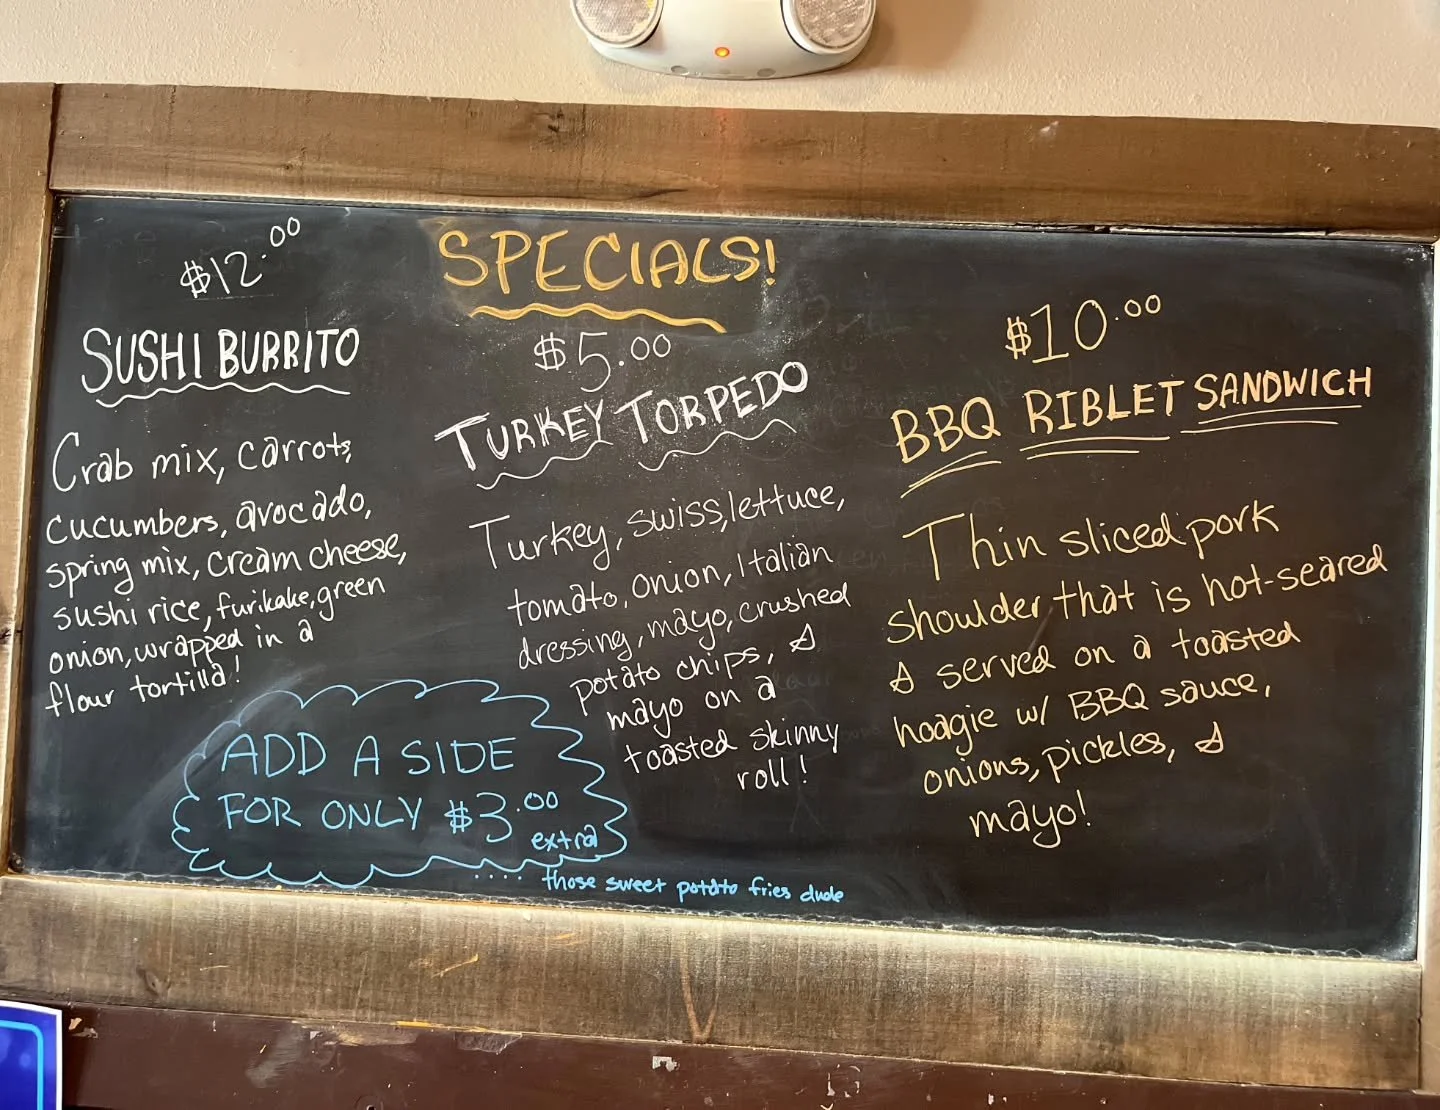 SPECIALS!
$12.00
SUSHI BURRITO
Crab mix, carrots,
cucumbers, avocado,
spring mix, cream cheese,
sushi rice, furikake, green
onion, wrapped in a
flour tortilla!
$5.00
TURKEY TORPEDO
Turkey, swiss, lettuce,
tomato, onion, Italian
dressing, mayo, crushed
potato chips, &
mayo on a
toasted skinny
roll!
$10.00
BBQ RIBLET SANDWICH
Thin sliced pork
shoulder that is hot-seared
& served on a toasted
hoagie w/ BBQ sauce,
onions, pickles, &
mayo!
ADD A SIDE
FOR ONLY $3.00
extra
.... those sweet potato fries dude